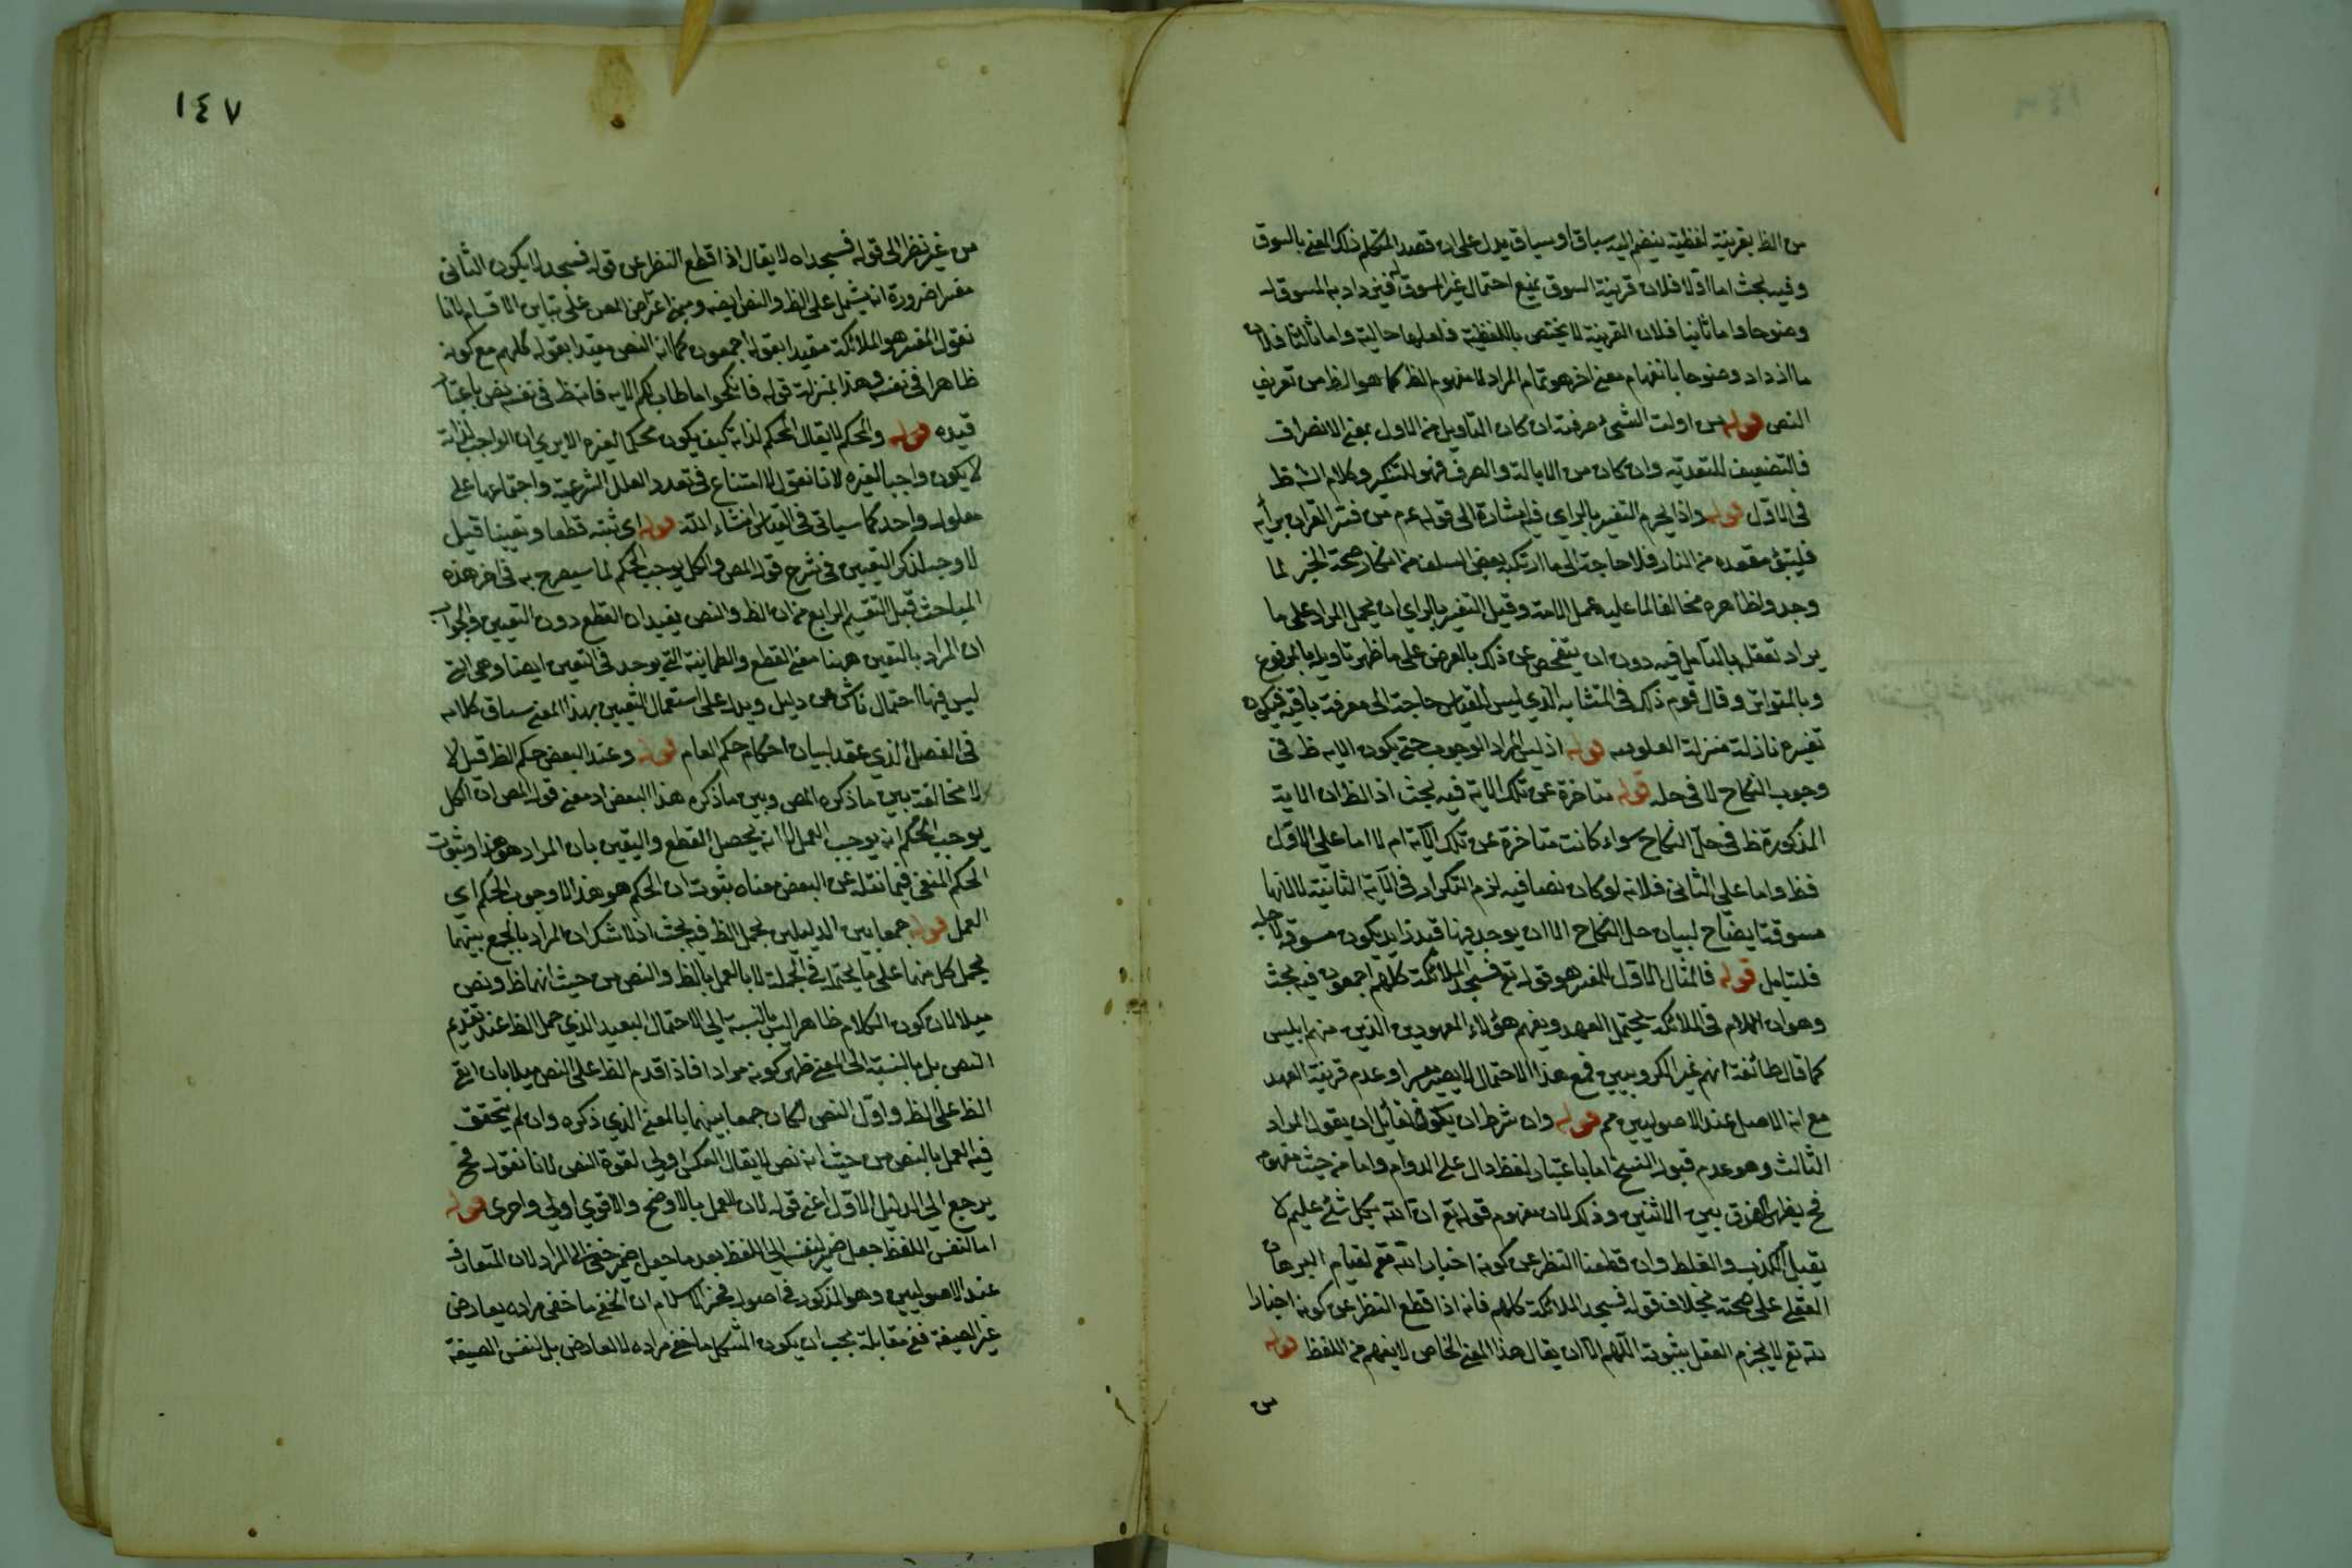 من الظ بقرينة لفظية ينضم اليه سباق او سياق يدل على ان قصد المتكلم ذلك المعنى بالسوق
وفيه بحث اما اولا فلان قرينة السوق تمنع احتمال غير المسوق له فيزداد به المسوق له
وضوحا واما ثانيا فلان القرينة لا يختص باللفظية فلعلها حالية واما ثالثا فلان
ما ازداد وضوحا بانفهام معنى اخر هو تمام المراد لا مفهوم الظ كما هو الظ من تعريف
النص قوله من اولت الشئ صرفته ان كان التاويل من الاول بمعنى الانصراف
فالتضعيف للتعدية وان كان من الايالة والصرف فهو للتكثير وكلام الش ظ
في الاول قوله واذا يحرم التفسير بالراي فيه اشارة الى قوله عم من فسر القران برأيه
فليتبؤ مقعده من النار فلا حاجة الى ما ارتكبه بعض السلف من انكار صحة الخبر لما
وجدوا ظاهره مخالفا لما عليه عمل الامة وقيل التفسير بالراي ان يحمل المراد على ما
يراد تعقلها بالتامل فيه دون ان يتفحص عن ذلك بالعرض على ما ظهر تاويله بالمرفوع
وبالمتواتر وقال قوم ذلك في المتشابه الذي ليس للناس حاجة الى معرفة باقيه فيكون
تفسيره نازلة منزلة العلو قوله اذ ليس المراد الوجوب حتى يكون الاية ظ في
وجوب النكاح لا في حله قوله متاخرة عن تلك الاية فيه بحث اذ الظ ان الاية
المذكورة ظ في حل النكاح سواء كانت متاخرة عن تلك الآية ام لا اما على الاول
فظ واما على الثاني فلانه لو كان نصا فيه لزم التكرار في الآية الثانية لا لانها
مسوقة ايضا ح لبيان حل النكاح الا ان يوجد فيها قيد زايد يكون مسوقة لاجله
فليتامل قوله فالمثال الاول للمفسر هو قوله تع فسجد الملائكة كلهم اجمعون فيه بحث
وهو ان اللام في الملائكة يحتمل العهد ويفهم هؤلاء المعهودين الذين منهم ابليس
كما قال طائفة انهم غير الكروبيين فمع هذا الاحتمال لا يصير مفسرا وعدم قرينة العهد
مع انه الاصل عند الاصوليين مم قوله وان شرط ان يكون لقائل ان يقول المراد
الثالث وهو عدم قبول النسخ اما باعتبار لفظ دال على الدوام واما من حيث مفهوم
فح يظهر الفرق بين الاثنين وذلك لان مفهوم قوله تع ان الله بكل شئ عليم لا
يقبل الكذب والغلط وان قطعنا النظر عن كونه اخبار الله تع لقيام البرهان
العقلي على صحته بخلاف قوله فسجد الملائكة كلهم فانه اذا قطع النظر عن كونه اخبارا
لله تع لا يجزم العقل بثبوته اللهم الا ان يقال هذا المعنى الخاص لا يفهم من اللفظ قوله
س
١٤٧
من غير نظر الى قوله فسجد اه لا يقال اذا قطع النظر عن قوله فسجد لا يكون الثاني
مفسرا ضرورة انه يشمل على الظ والنص ايضا ومبنى اعتراض المص على تباين الاقسام لانا
نقول المفسر هو الملائكة مقيدا بقوله اجمعون كما انه النص مقيدا بقوله كلهم مع كونه
ظاهرا في نفسه وهذا بمنزلة قوله فانكحوا ما طاب لكم الاية فانه ظ في نفسه نص باعتبار
قيده قوله والمحكم لا يقال المحكم لذاته كيف يكون محكما لغيره الا يرى ان الواجب لذاته
لا يكون واجبا لغيره لانا نقول لا امتناع في تعدد العلل الشرعية واجتماعها على
معلول واحد كما سياتي في القياس انشاء الله قوله اي ثبته قطعا ويقينا قيل
لا وجه لذكر اليقين في شرح قول المص والكل يوجب الحكم لما سيصرح به في اخر هذه
المباحث قبل التقسيم الرابع من ان الظ والنص يفيدان القطع دون اليقين والجواب
ان المراد باليقين ههنا معنى القطع والطمانينة التي يوجد في اليقين ايضا وهي التي
ليس فيها احتمال ناش عن دليل ويدل على استعمال اليقين بهذا المعنى سياق كلامه
في الفصل الذي عقد لبيان احكام حكم العام قوله وعند البعض حكم الظ قيل لا
لا مخالفة بين ما ذكره المص وبين ما ذكره هذا البعض اذ معنى قول المص ان الكل
يوجب الحكم انه يوجب العمل لا انه يحصل القطع واليقين بان المراد هو هذا وثبوت
الحكم المنفي فيما نقله عن البعض معناه بثبوت ان الحكم هو هذا لا وجوب الحكم اي
العمل قوله جمعا بين الدليلين بحمل الظ فيه بحث اذ لا شك ان المراد بالجمع بينهما
يحمل كل منهما على ما يحتمله في الجملة لا بالعمل بالظ والنص من حيث انهما ظ ونص
ميلا لان كون الكلام ظاهرا ليس بالنسبة الى الاحتمال البعيد الذي حمل الظ عند تقديم
النص بل بالنسبة الى المعنى ظهر كونه مرادا فاذا قدم الظ على النص ميلا بان ابقي
الظ على الظ واول النص لكان جمعا بينهما بالمعنى الذي ذكره وان لم يتحقق
فيه العمل بالنص من حيث انه نص لا يقال العكس اولى لقوة النص لانا نقول فح
يرجع الى الدليل الاول اعني قوله لان العمل بالاوضح والاقوي اولى واحرى قوله
اما لنفس اللفظ جعل ضمير لنفسه الى اللفظ بعد ما جعل ضمير خفي الى المراد لان المتعارف
عند الاصوليين وهو المذكور في اصول فخر الاسلام ان الخفي ما خفي مراده بعارض
غير الصيغة ففي مقابلة يجب ان يكون المشكل ما خفي مراده لا لعارض بل لنفس الصيغة